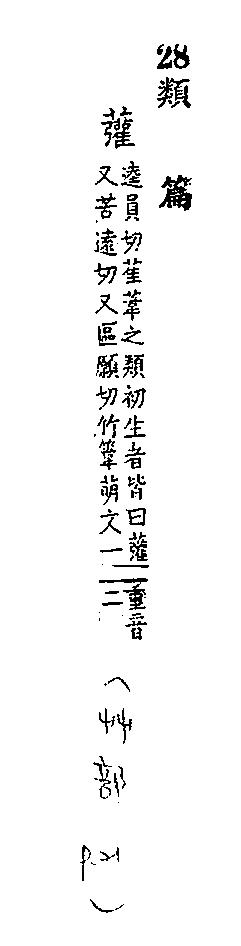 28類篇
虇
逵員切萑葦之類初生者皆曰虇重音
又苦遠切又區願切竹葦萌文一二
(艸部 p.21)